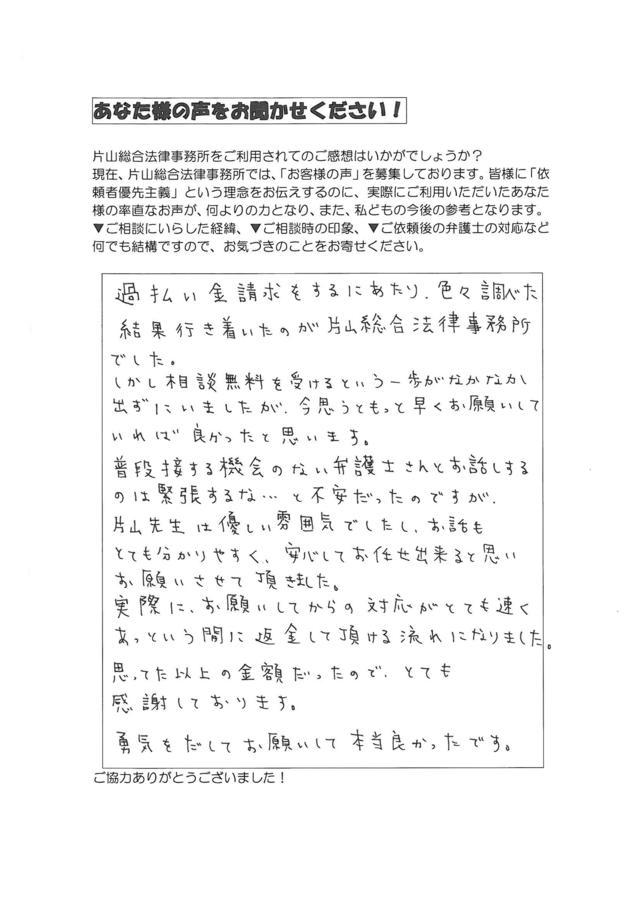 あなた様の声をお聞かせください！
片山総合法律事務所をご利用されてのご感想はいかがでしょうか？
現在、片山総合法律事務所では、「お客様の声」を募集しております。皆様に「依
頼者優先主義」という理念をお伝えするのに、実際にご利用いただいたあなた
様の率直なお声が、何よりの力となり、また、私どもの今後の参考となります。
▼ご相談にいらした経緯、▼ご相談時の印象、▼ご依頼後の弁護士の対応など
何でも結構ですので、お気づきのことをお寄せください。
過払い金請求をするにあたり、色々調べた
結果行き着いたのが片山総合法律事務所
でした。
しかし相談無料を受けるという一歩がなかなか
出ずにいましたが、今思うともっと早くお願いして
いれば良かったと思います。
普段接する機会のない弁護士さんとお話しする
のは緊張するな…と不安だったのですが、
片山先生は優しい雰囲気でしたし、お話も
とても分かりやすく、安心してお任せ出来ると思い
お願いさせて頂きました。
実際に、お願いしてからの対応がとても速く
あっという間に返金して頂ける流れになりました。
思ってた以上の金額だったので、とても
感謝しております。
勇気をだしてお願いして本当良かったです。
ご協力ありがとうございました！